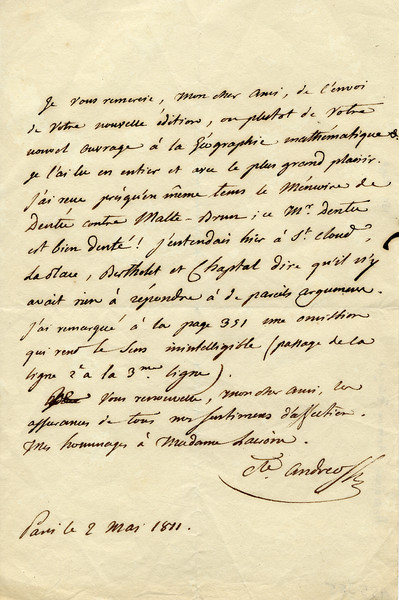 Je vous remercie, mon cher ami, de l'envoi
de votre nouvelle édition, ou plutot de votre
nouvel ouvrage à la Géographie mathématique &.
je l'ai lu en entier et avec le plus grand plaisir.
J'ai reçu presqu'en même tems le Mémoire de
Dentu contre Malte-Brun; ce Mr. Dentu
est bien denté! j'entendais hier à St. Cloud,
LaPlace, Berthollet et Chaptal dire qu'il n'y
avait rien à répondre à de pareils argumens.
J'ai remarqué à la page 351 une omission
qui rend le sens inintelligible (passage de la
ligne 2e à la 3me ligne).
Vous renouvelle, mon cher ami, les
assurances de tous mes sentimens d'affection.
Mes hommages à Madame Lacroix.
Cte. Andreossy
Paris le 2 Mai 1811.